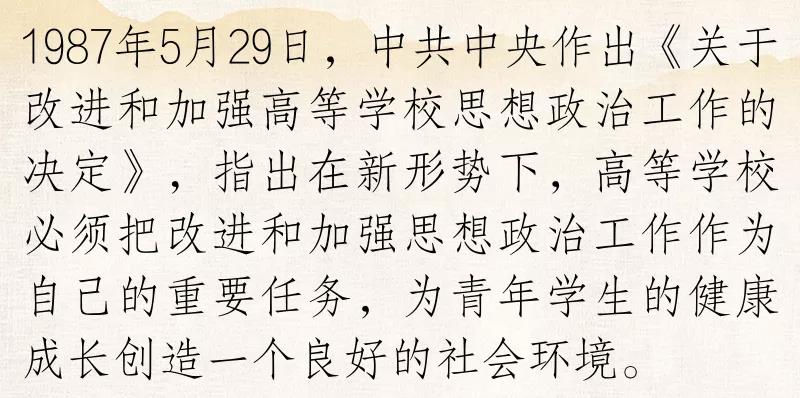 1987年5月29日，中共中央作出《关于
改进和加强高等学校思想政治工作的
决定》，指出在新形势下，高等学校
必须把改进和加强思想政治工作作为
自己的重要任务，为青年学生的健康
成长创造一个良好的社会环境。